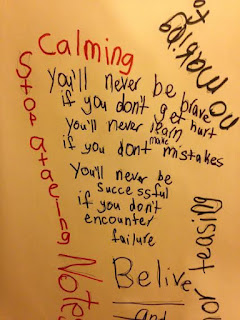 Calming
You'll never be brave
if you don't get hurt
You'll never learn
if you don't make mistakes
You'll never be
successful
if you don't
encounter
failure
Stop
Notes
Belive
and
or teasing
no